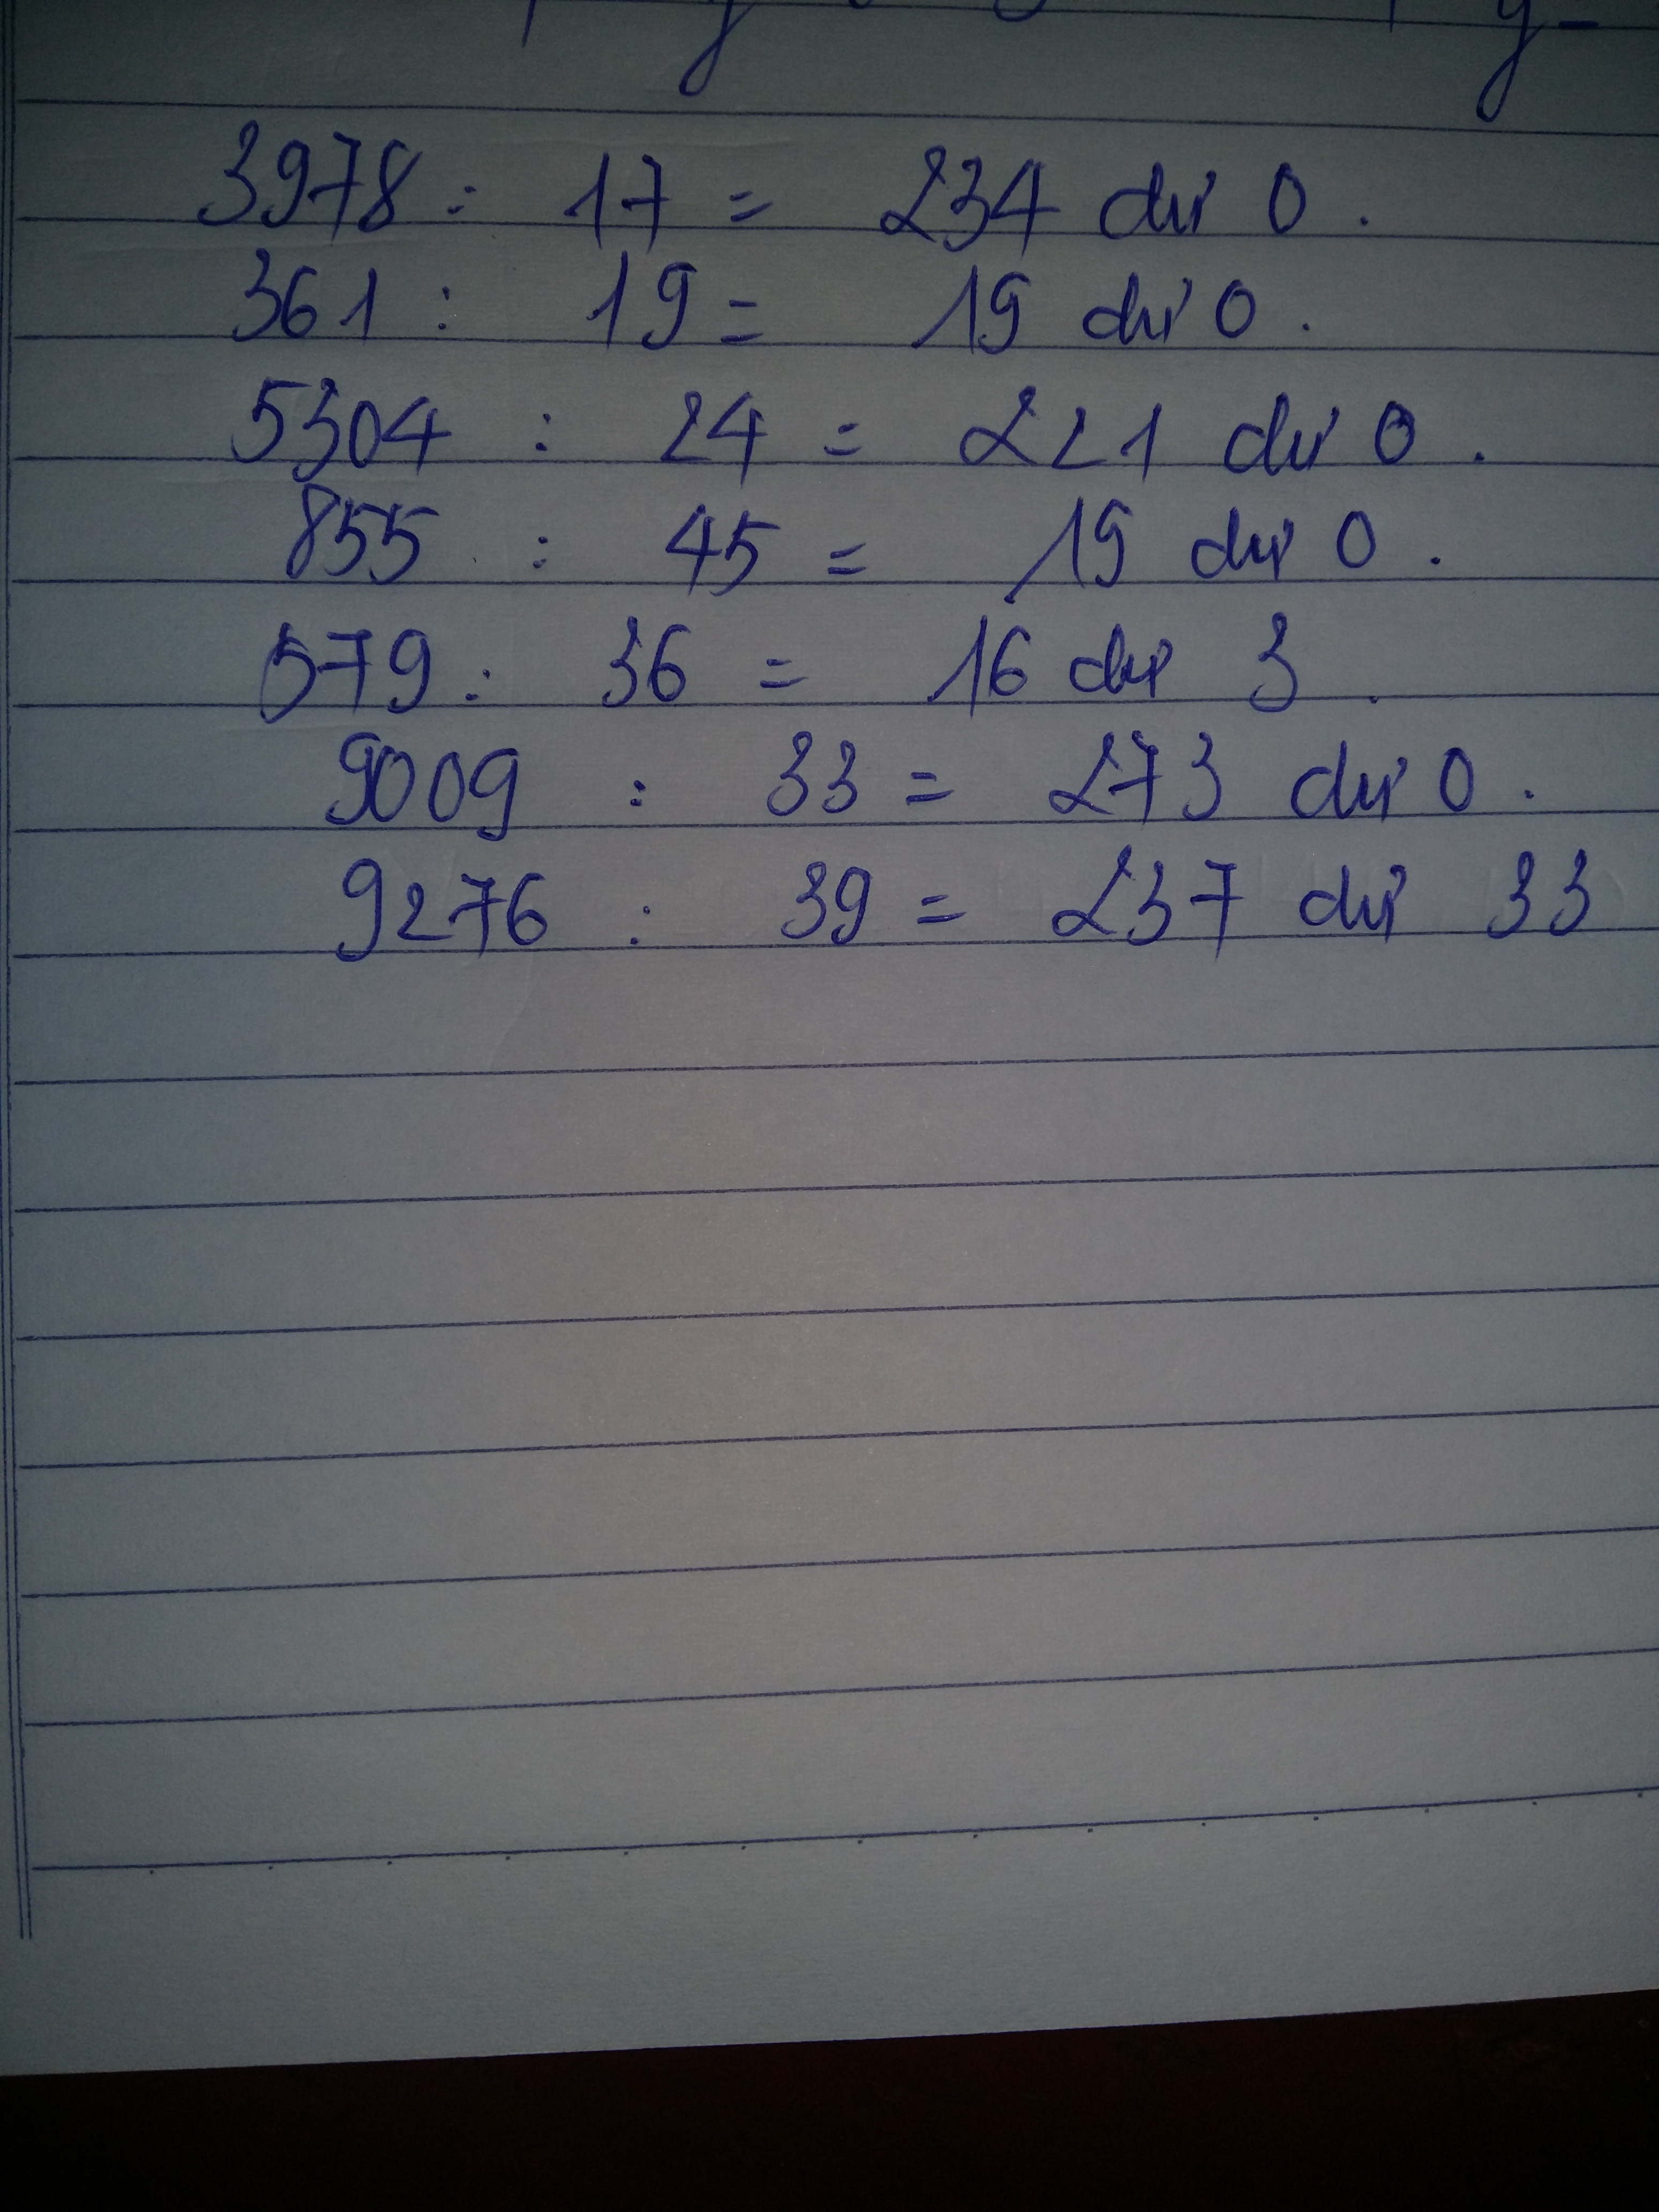 3978 : 17 = 234 dư 0 .
361 : 19 = 19 dư 0 .
5304 : 24 = 221 dư 0 .
855 : 45 = 19 dư 0 .
579 : 36 = 16 dư 3 .
9009 : 33 = 273 dư 0 .
9276 : 39 = 237 dư 33